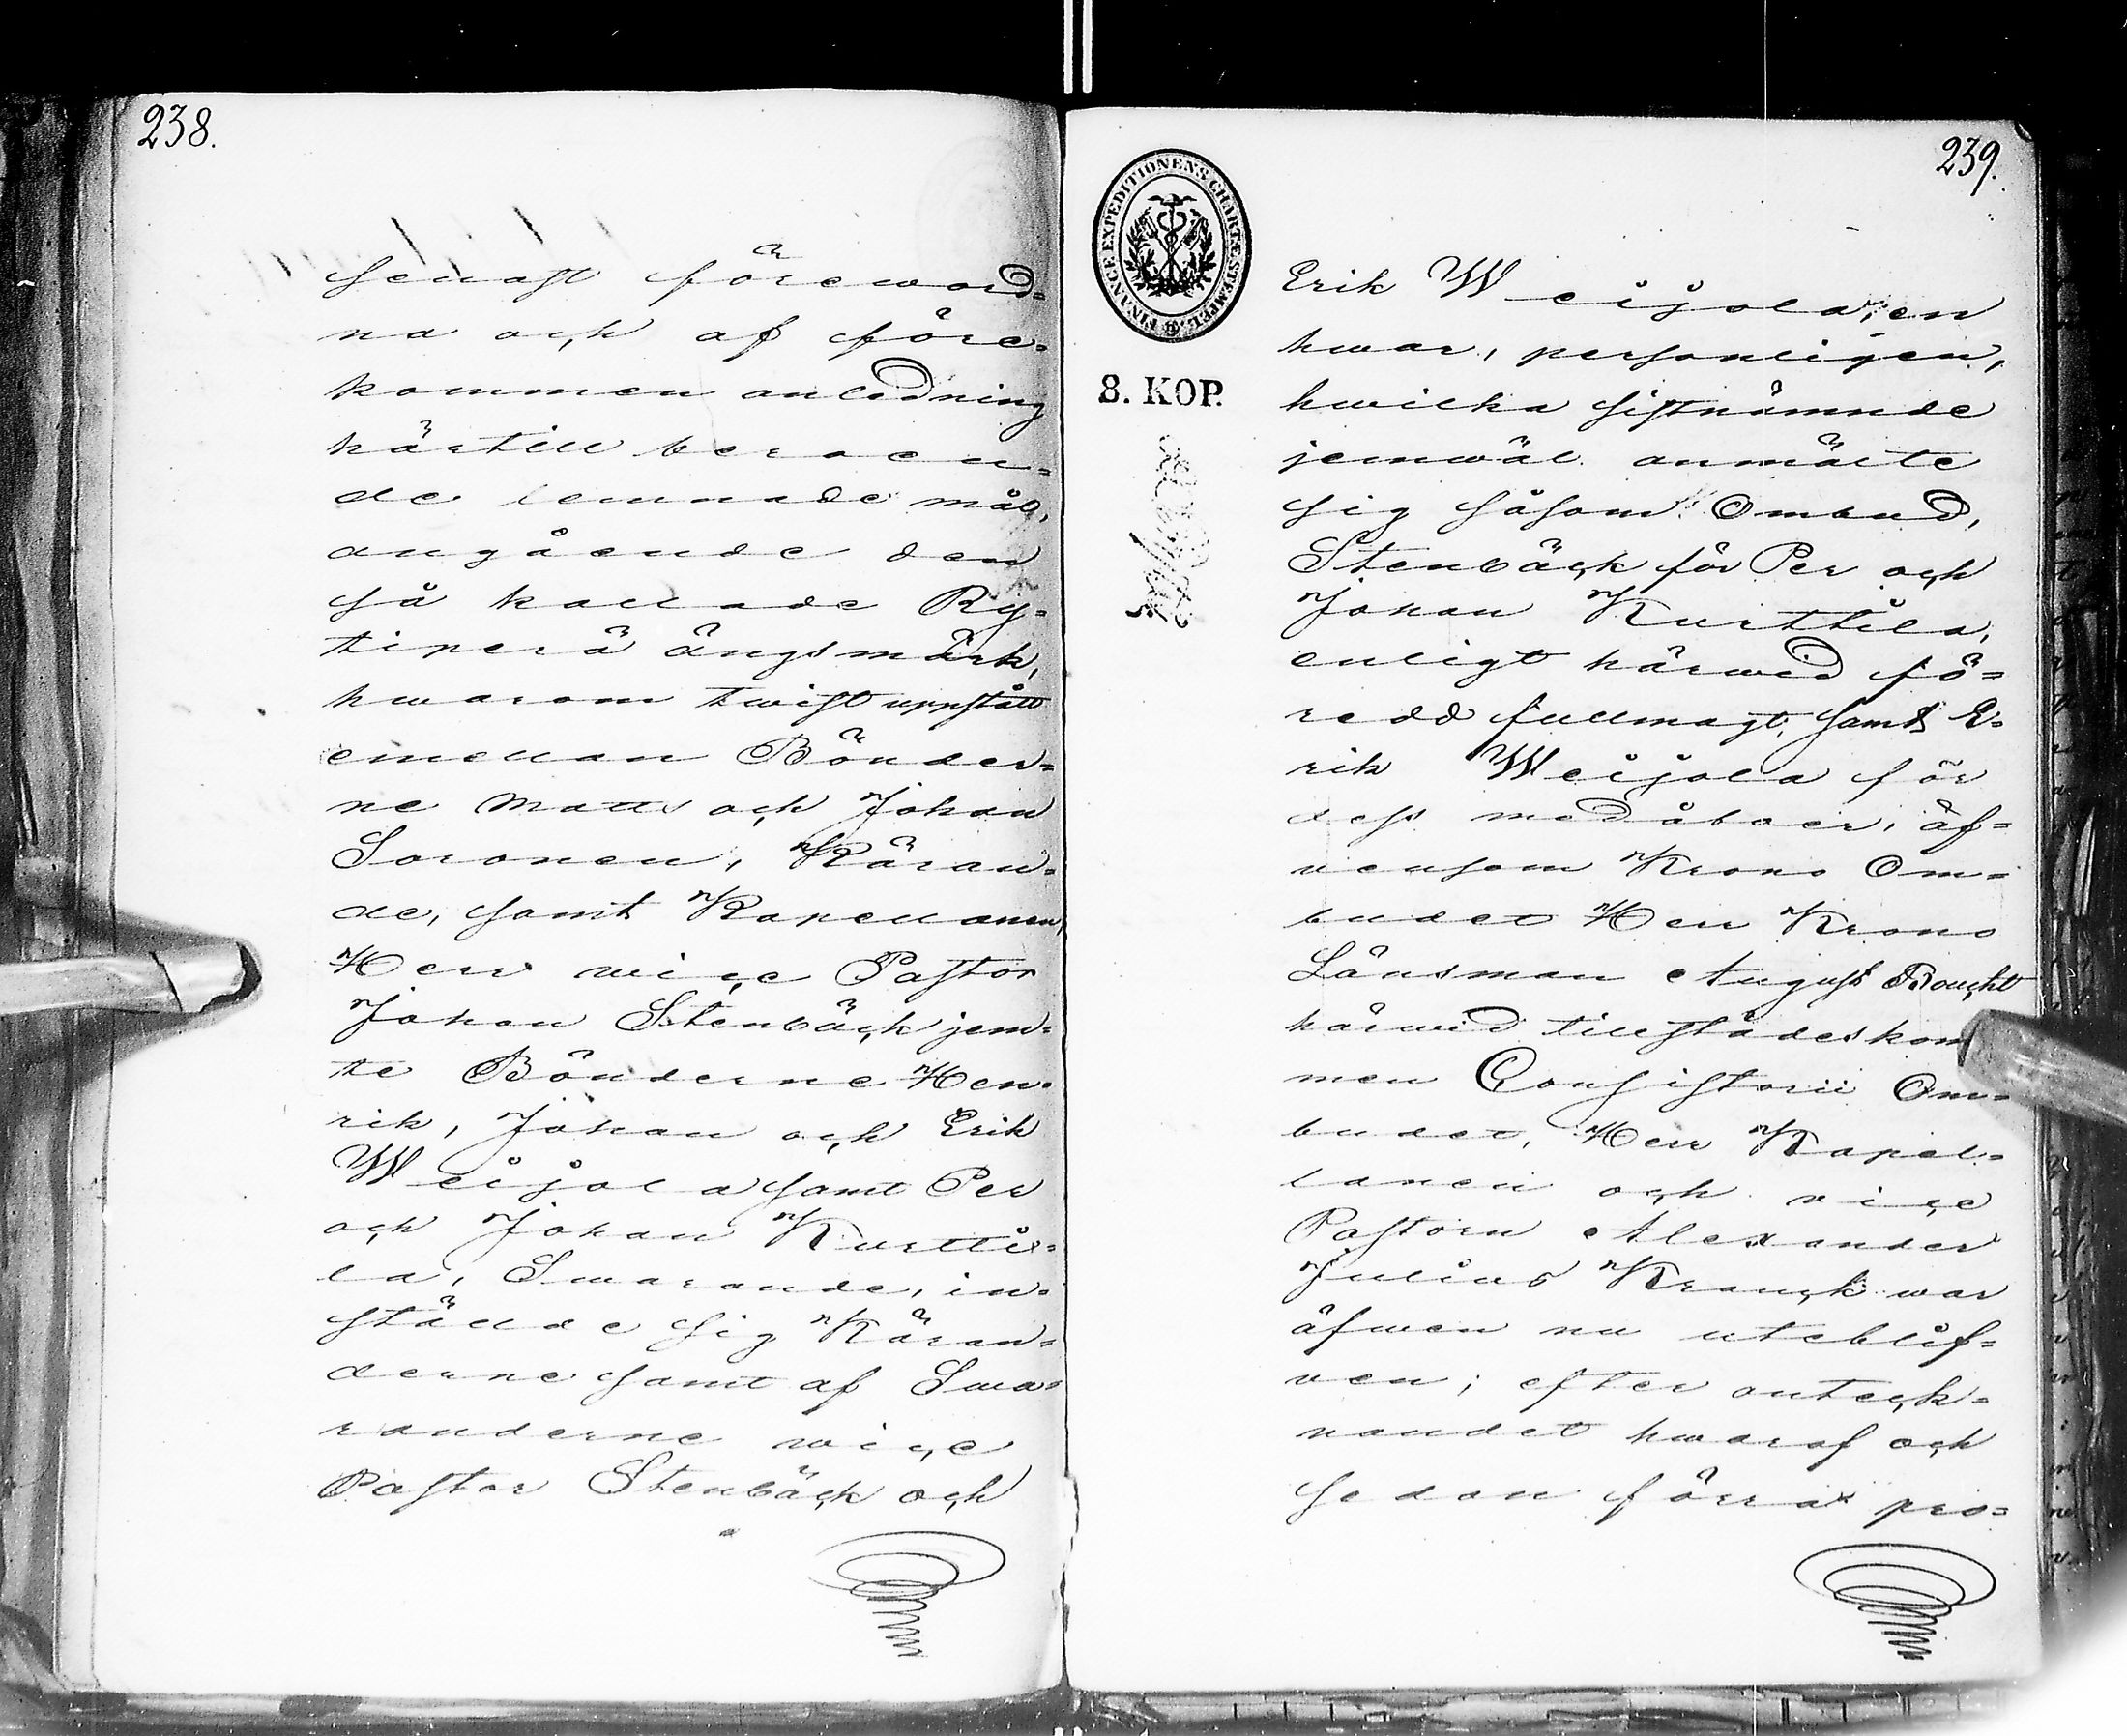 238.
senast föreward=
na och af före=
kommen anledning
härtill beroen=
de lemnade mål,
angående den
så kallade Ry=
tiperä ängsmark,
hwarom twist uppstått
emellan Bönder=
ne Matts och Johan
Soronen, Käran=
de, samt Kapellanen,
Herr vice Pastor
Johan Stenbäck jem=
te Bönderne Hen=
rik, Johan och Erik
Weijola samt Per
och Johan Kurtti=
la, Swarande, in=
stälde sig Käran=
derne samt af Swa=
randerne vice
Pastor Stenbäck och
239.
FINANCE EXPEDITIONENS CHARTÆ STEMPEL
8. KOP.
Erik Weijola, en
hwar, personligen,
hwilka sistnämnde
jemwäl anmälte
sig såsom Ombud,
Stenbäck för Per och
Johan Kurttila,
enligt härwid fö=
redd fullmagt, samt E=
rik Weijola för
dess medåboer, äf=
vensom Krono Om=
budet Herr Krono
Länsman August
härwid tillstädeskom
men Consistorii Om=
budet, Herr Kapel=
lanen och vice
Pastorn Alexander
Julius Kranck war
äfwen nu uteblif=
ven; efter anteck=
nandet hwaraf och
sedan förra pro=